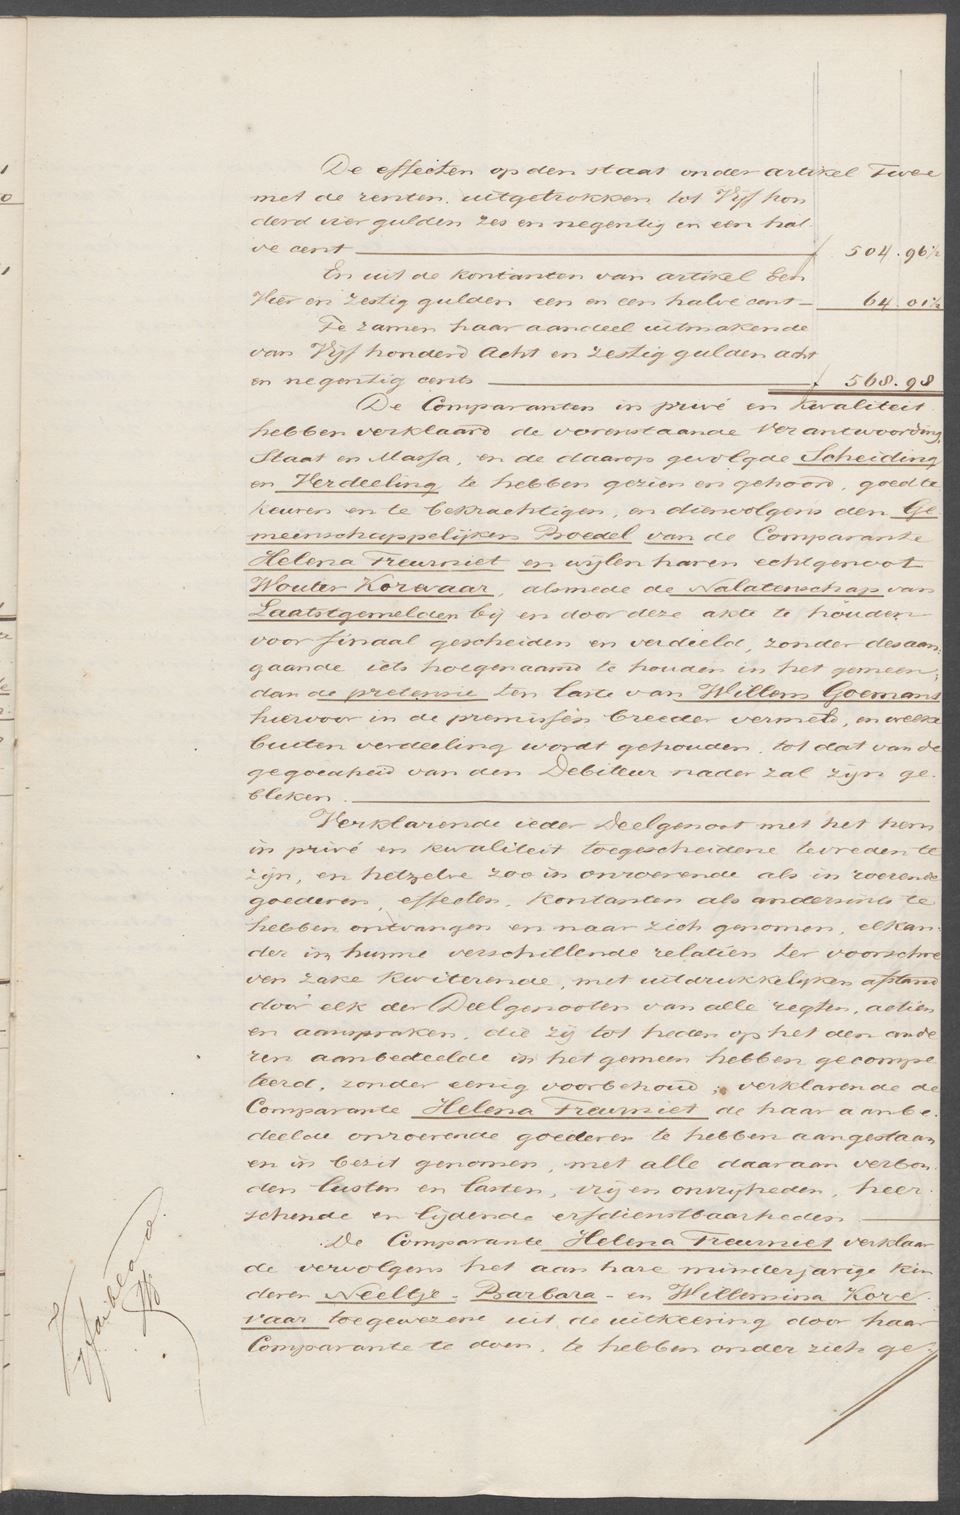 De effecten op den staat onder artikel Twee
met de renten, uitgetrokken tot Vijf hon
derd vier gulden zes en negentig en een hal
ve cent f 504.96½
En uit de kontanten van artikel Een
Vier en zestig gulden een en een halve cent 64.01½
Te zamen haar aandeel uitmakende
van Vijf honderd Acht en zestig gulden acht
en negentig cents f 568.98
De Comparanten in privé en kwaliteit
hebben verklaard de vorenstaande Verantwoording,
Staat en Massa, en de daarop gevolgde Scheiding
en Verdeeling te hebben gezien en gehoord, goed te
keuren en te bekrachtigen, en dienvolgens den Ge
meenschappelijken Boedel van de Comparante
Helena Treurniet en wijlen haren echtgenoot
Wouter Korevaar, alsmede de Nalatenschap van
Laatstgemelden bij en door deze akte te houden
voor finaal gescheiden en verdeeld, zonder desaan,
gaande iets hoegenaamd te houden in het gemeen,
dan de pretensie ten laste van Willem Goemans
hiervoor in de premissen breeder vermeld, en welke
buiten verdeeling wordt gehouden, tot dat van de
gegoedheid van den Debiteur nader zal zijn ge.
bleken.
Verklarende ieder Deelgenoot met het hem
in privé en kwaliteit toegescheidene tevreden te
zijn, en hetzelve zoo in onroerende als in roerende
goederen, effecten, kontanten als andersints te
hebben ontvangen en naar zich genomen, elkan,
der in hunne verschillende relatien ter voorschre
ven zake kwiterende, met uitdrukkelijken afstand
door elk der Deelgenooten van alle regten, actien
en aanspraken, die zij tot heden op het den ande
ren aanbedeelde in het gemeen hebben gecompe
teerd, zonder eenig voorbehoud; verklarende de
Comparante Helena Treurniet de haar aanbe.
deelde onroerende goederen te hebben aangestaan
en in bezit genomen, met alle daaraan verbon.
den lusten en lasten, vrij en onvrijheden, heer.
schende en lijdende erfdienstbaarheden
De Comparante Helena Treurniet verklaar
de vervolgens het aan hare minderjarige kin
deren Neeltje - Barbara - en Willemina Kore.
vaar toegewezene uit de uitkeering door haar
Comparante te doen, te hebben onder zich ge,